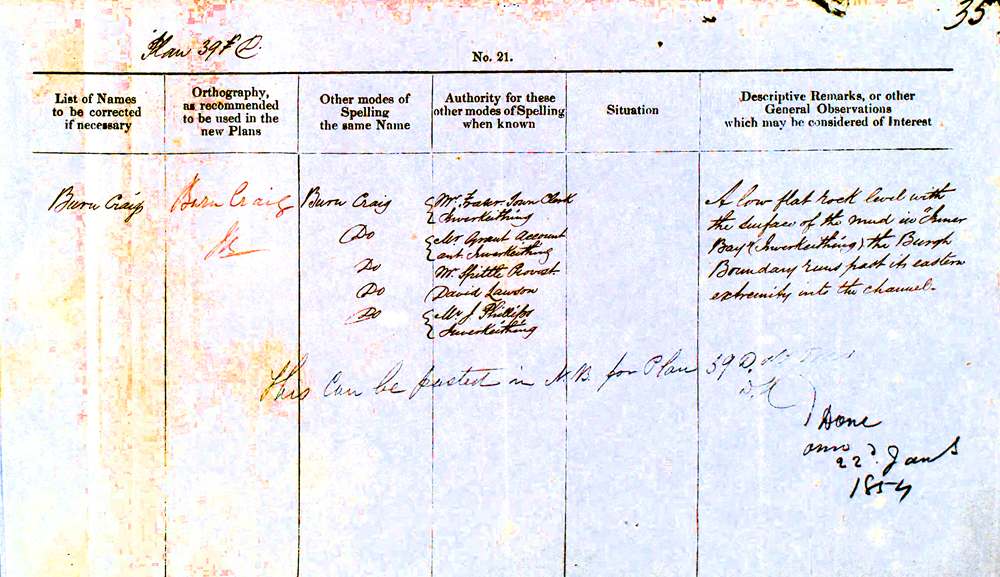 35
Plan 39 D.
No. 21.
List of Names
to be corrected
if necessary
Orthography,
as recommended
to be used in the
new Plans
Other modes of
Spelling
the same Name
Authority for these
other modes of Spelling
when known
Situation
Descriptive Remarks, or other
General Observations
which may be considered of Interest
Buru Craig
Buru Craig
Buru Craig
Do
Do
Do
Do
Mr. Fraser Town Clerk
Inverkeithing
Mr Grant Account
ant Inverkeithing
Mr. Spittle Provost
David Lawson
Mr J Phillips
Inverkeithing
A low flat rock level with
the surface of the mud in "Inner
Bay" (Inverkeithing) the Burgh
Boundary runs past its eastern
extremity into the channel.
This can be pasted in N.B. for Plan 39 D.
Done
22d. Jany
1854